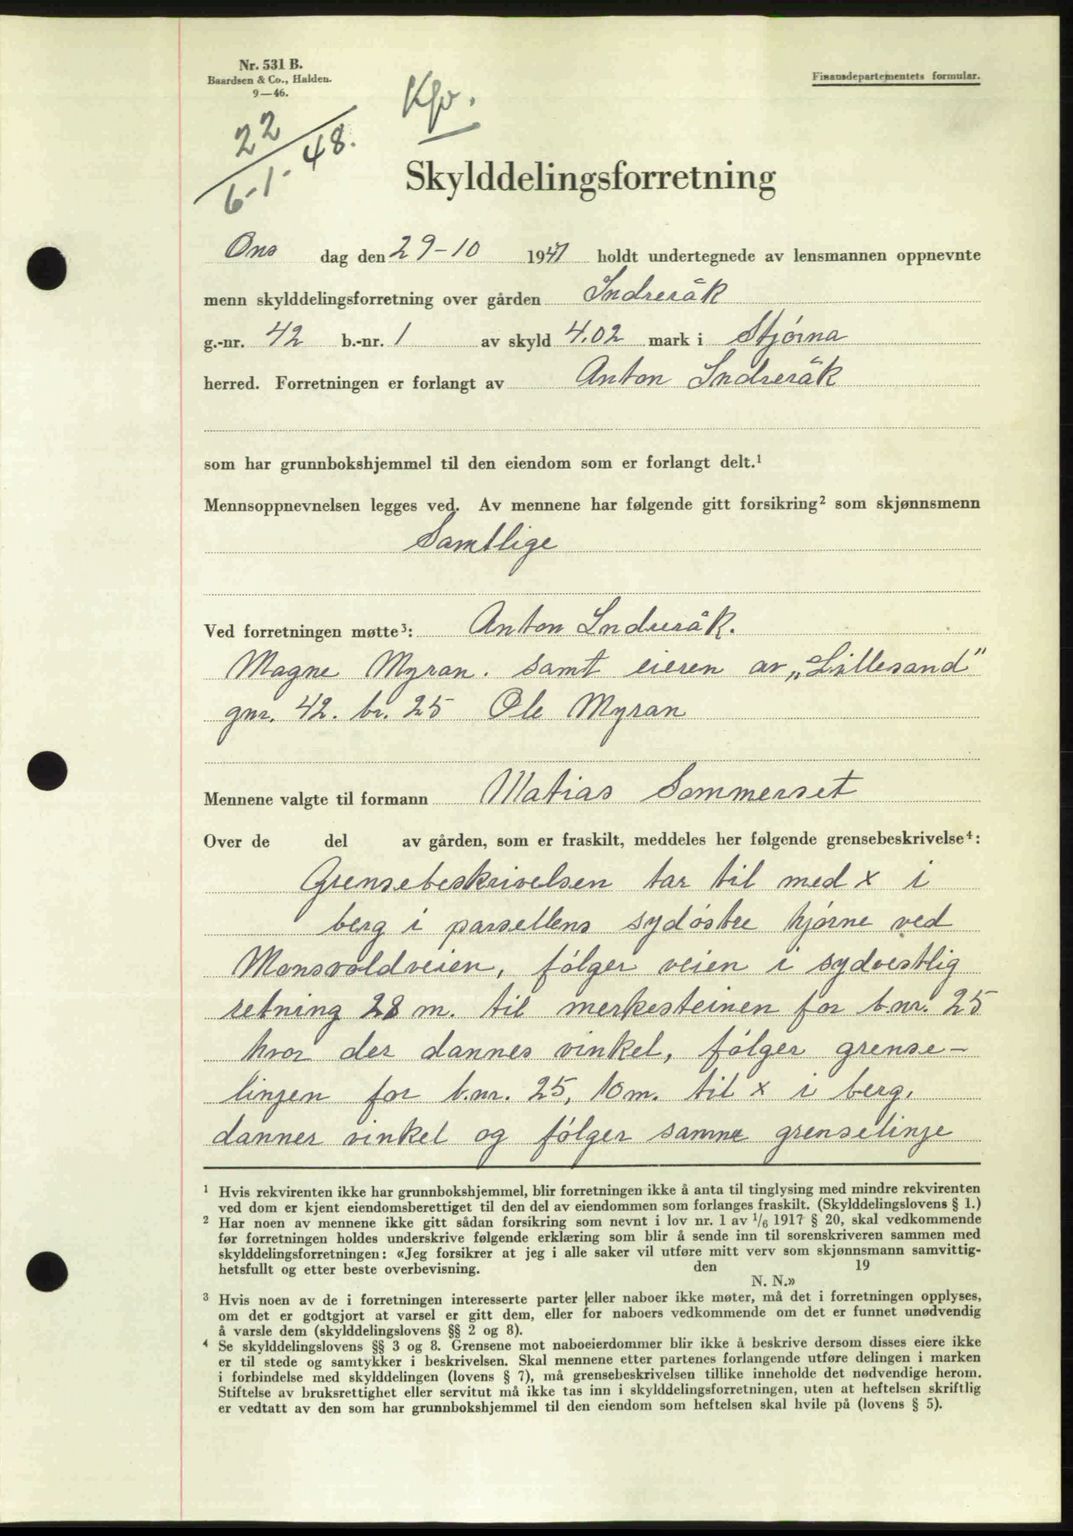 Nr. 531 B.
Baardsen & Co., Halden.
9—46.
Finansdepartementets formular.
Kfv.
22
6-1-48.
Skylddelingsforretning
Ons dag den 29-10 1947 holdt undertegnede av lensmannen oppnevnte
menn skylddelingsforretning over gården Indreråk
g.-nr. 42 b.-nr. 1 av skyld 4.02 mark i Stjórna
herred. Forretningen er forlangt av Anton Indreråk
som har grunnbokshjemmel til den eiendom som er forlangt delt.¹
Mennsoppnevnelsen legges ved. Av mennene har følgende gitt forsikring² som skjønnsmenn
Samtlige
Ved forretningen møtte³: Anton Indreråk.
Magne Myran. samt eieren av „Lillesand"
gnr. 42. br. 25 Ole Myran
Mennene valgte til formann Matias Sommerset
Over de del av gården, som er fraskilt, meddeles her følgende grensebeskrivelse⁴:
Grensebeskrivelsen tar til med x i
berg i parsellens sydóstre hjórne ved
Monsvoldveien, fólger veien i sydvestlig
retning 28 m. til merkesteinen for b.nr. 25
hvor der dannes vinkel, fólger grense-
linjen for b.nr. 25, 10 m. til x i berg,
danner vinkel og fólger samme grenselinje
¹ Hvis rekvirenten ikke har grunnbokshjemmel, blir forretningen ikke å anta til tinglysing med mindre rekvirenten
ved dom er kjent eiendomsberettiget til den del av eiendommen som forlanges fraskilt. (Skylddelingslovens § 1.)
² Har noen av mennene ikke gitt sådan forsikring som nevnt i lov nr. 1 av 1/6 1917 § 20, skal vedkommende
før forretningen holdes underskrive følgende erklæring som blir å sende inn til sorenskriveren sammen med
skylddelingsforretningen: «Jeg forsikrer at jeg i alle saker vil utføre mitt verv som skjønnsmann samvittig-
hetsfullt og etter beste overbevisning. den 19
N. N.»
³ Hvis noen av de i forretningen interesserte parter eller naboer ikke møter, må det i forretningen opplyses,
om det er godtgjort at varsel er gitt dem, eller for naboers vedkommende om det er funnet unødvendig
å varsle dem (skylddelingslovens §§ 2 og 8).
⁴ Se skylddelingslovens §§ 3 og 8. Grensene mot naboeierdommer blir ikke å beskrive dersom disses eiere ikke
er til stede og samtykker i beskrivelsen. Skal mennene etter partenes forlangende utføre delingen i marken
i forbindelse med skylddelingen (lovens § 7), må grensebeskrivelsen tillike inneholde det nødvendige herom.
Stiftelse av bruksrettighet eller servitut må ikke tas inn i skylddelingsforretningen, uten at heftelsen skriftlig
er vedtatt av den som har grunnbokshjemmel til den eiendom som heftelsen skal hvile på (lovens § 5).